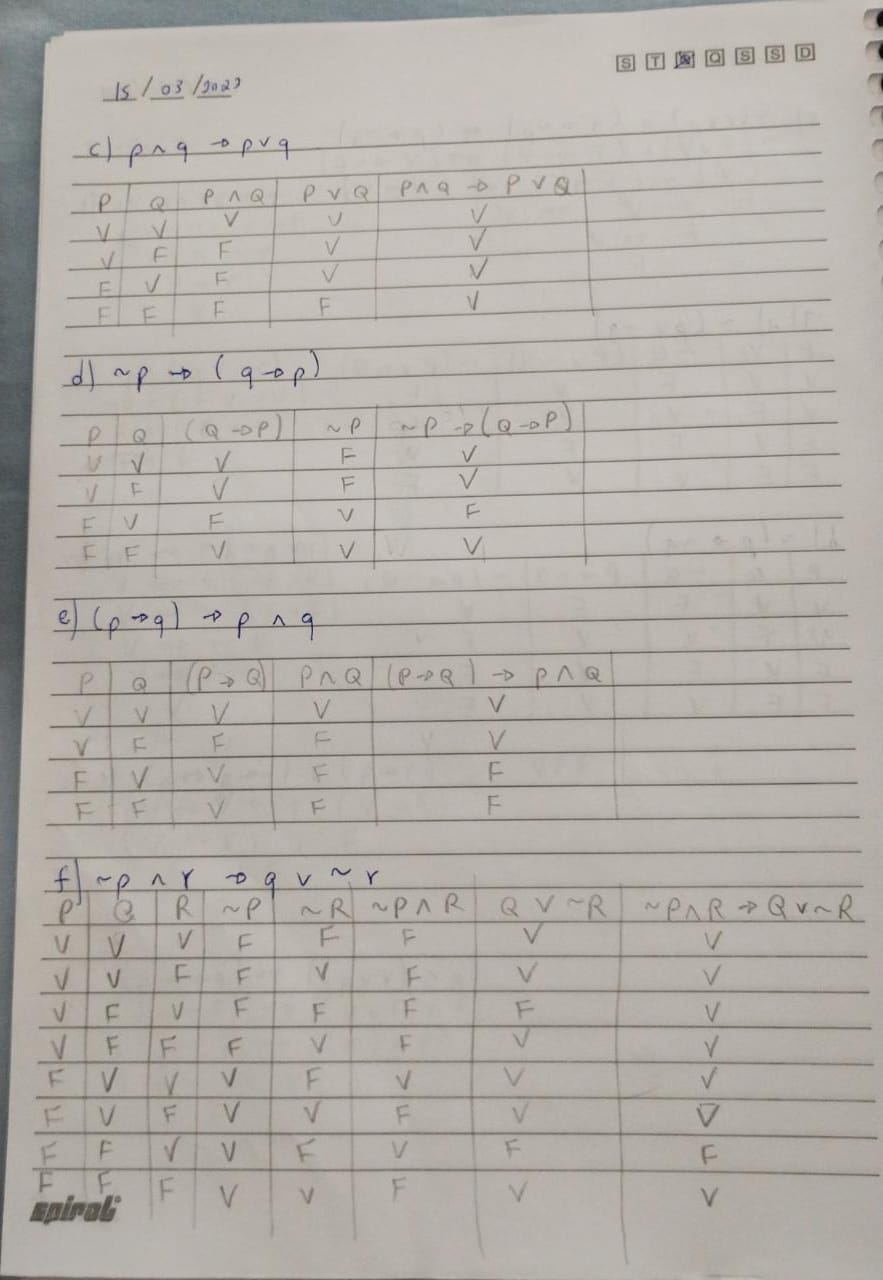 S T Q Q S S D
15/03/2022
c) p ∧ q → p ∨ q
P Q P ∧ Q P ∨ Q P ∧ Q → P ∨ Q
V V V V V
V F F V V
F V F V V
F F F F V
d) ~p → (q → p)
P Q (Q → P) ~P ~P → (Q → P)
V V V F V
V F V F V
F V F V F
F F V V V
e) (p → q) → p ∧ q
P Q (P → Q) P ∧ Q (P → Q) → P ∧ Q
V V V V V
V F F F V
F V V F F
F F V F F
f) ~p ∧ r → q ∨ ~r
P Q R ~P ~R ~P ∧ R Q ∨ ~R ~P ∧ R → Q ∨ ~R
V V V F F F V V
V V F F V F V V
V F V F F F F V
V F F F V F V V
F V V V F V V V
F V F V V F V V
F F V V F V F F
F F F V V F V V
spiral